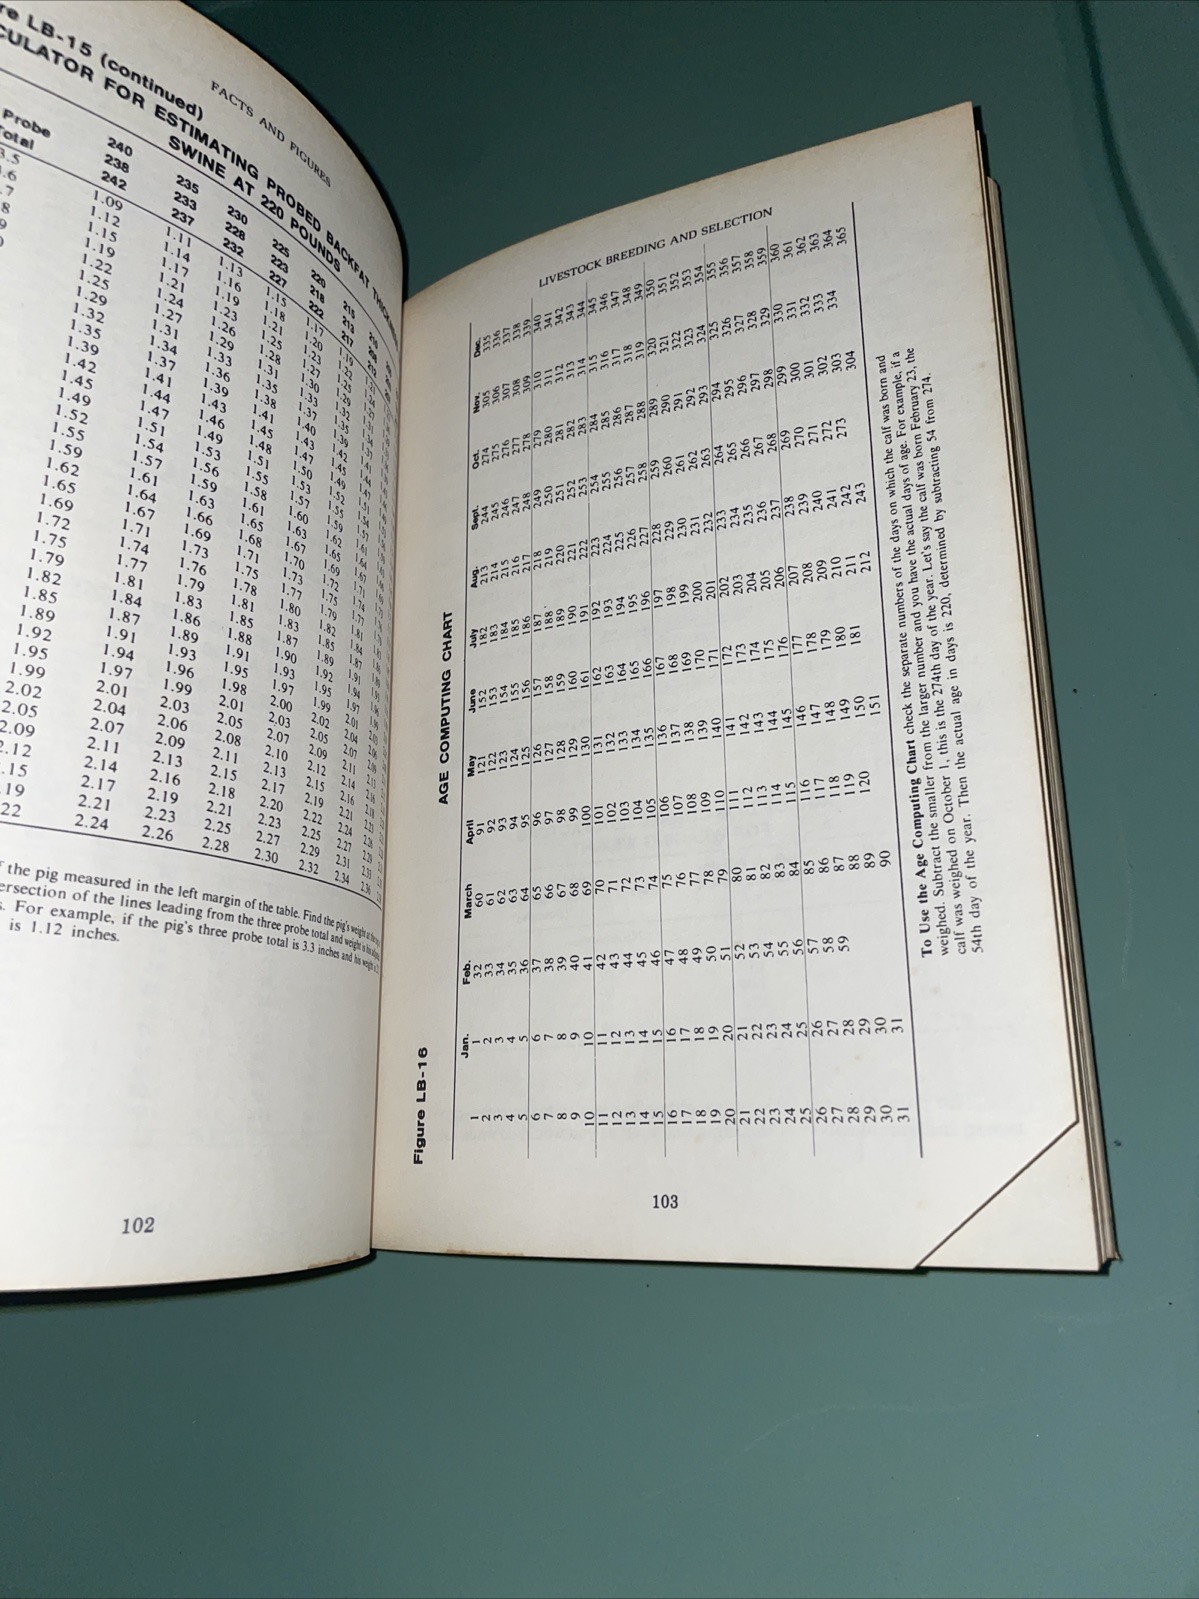 FACTS AND FIGURES
re LB-15 (continued)
CULATOR FOR ESTIMATING PROBED BACKFAT
SWINE AT 220 POUNDS
Probe 240 235 230 225 220 215
Total 238 233 228 223 218 213
242 237 232 227 222 217
1.09 1.11 1.13 1.15 1.17 1.19
1.12 1.14 1.16 1.18 1.20
1.15 1.17 1.19 1.21 1.23
1.19 1.21 1.23 1.25 1.27
1.22 1.24 1.26 1.28 1.30
1.25 1.27 1.29 1.31 1.33
1.29 1.31 1.33 1.35 1.37
1.32 1.34 1.36 1.38 1.40
1.35 1.37 1.39 1.41 1.43
1.39 1.41 1.43 1.45 1.47
1.42 1.44 1.46 1.48 1.50
1.45 1.47 1.49 1.51 1.53
1.49 1.51 1.53 1.55 1.57
1.52 1.54 1.56 1.58 1.60
1.55 1.57 1.59 1.61 1.63
1.59 1.61 1.63 1.65 1.67
1.62 1.64 1.66 1.68 1.70
1.65 1.67 1.69 1.71 1.73
1.69 1.71 1.73 1.75 1.77
1.72 1.74 1.76 1.78 1.80
1.75 1.77 1.79 1.81 1.83
1.79 1.81 1.83 1.85 1.87
1.82 1.84 1.86 1.88 1.90
1.85 1.87 1.89 1.91 1.93
1.89 1.91 1.93 1.95 1.97
1.92 1.94 1.96 1.98 2.00
1.95 1.97 1.99 2.01 2.03
1.99 2.01 2.03 2.05 2.07
2.02 2.04 2.06 2.08 2.10
2.05 2.07 2.09 2.11 2.13
2.09 2.11 2.13 2.15 2.17
2.12 2.14 2.16 2.18 2.20
.15 2.17 2.19 2.21 2.23
.19 2.21 2.23 2.25 2.27 2.29 2.31
22 2.24 2.26 2.28 2.30 2.32 2.34
f the pig measured in the left margin of the table. Find the pig's weight at the
ersection of the lines leading from the three probe total and weight
s. For example, if the pig's three probe total is 3.3 inches and his weight
is 1.12 inches.
102
LIVESTOCK BREEDING AND SELECTION
Figure LB-16
AGE COMPUTING CHART
Jan. Feb. March April May June July Aug. Sept. Oct. Nov. Dec.
1 1 32 60 91 121 152 182 213 244 274 305 335
2 2 33 61 92 122 153 183 214 245 275 306 336
3 3 34 62 93 123 154 184 215 246 276 307 337
4 4 35 63 94 124 155 185 216 247 277 308 338
5 5 36 64 95 125 156 186 217 248 278 309 339
6 6 37 65 96 126 157 187 218 249 279 310 340
7 7 38 66 97 127 158 188 219 250 280 311 341
8 8 39 67 98 128 159 189 220 251 281 312 342
9 9 40 68 99 129 160 190 221 252 282 313 343
10 10 41 69 100 130 161 191 222 253 283 314 344
11 11 42 70 101 131 162 192 223 254 284 315 345
12 12 43 71 102 132 163 193 224 255 285 316 346
13 13 44 72 103 133 164 194 225 256 286 317 347
14 14 45 73 104 134 165 195 226 257 287 318 348
15 15 46 74 105 135 166 196 227 258 288 319 349
16 16 47 75 106 136 167 197 228 259 289 320 350
17 17 48 76 107 137 168 198 229 260 290 321 351
18 18 49 77 108 138 169 199 230 261 291 322 352
19 19 50 78 109 139 170 200 231 262 292 323 353
20 20 51 79 110 140 171 201 232 263 293 324 354
21 21 52 80 111 141 172 202 233 264 294 325 355
22 22 53 81 112 142 173 203 234 265 295 326 356
23 23 54 82 113 143 174 204 235 266 296 327 357
24 24 55 83 114 144 175 205 236 267 297 328 358
25 25 56 84 115 145 176 206 237 268 298 329 359
26 26 57 85 116 146 177 207 238 269 299 330 360
27 27 58 86 117 147 178 208 239 270 300 331 361
28 28 59 87 118 148 179 209 240 271 301 332 362
29 29 88 119 149 180 210 241 272 302 333 363
30 30 89 120 150 181 211 242 273 303 334 364
31 31 90 151 212 243 304 365
To Use the Age Computing Chart check the separate numbers of the days on which the calf was born and
weighed. Subtract the smaller from the larger number and you have the actual days of age. For example, if a
calf was weighed on October 1, this is the 274th day of the year. Let's say the calf was born February 23, the
54th day of the year. Then the actual age in days is 220, determined by subtracting 54 from 274.
103